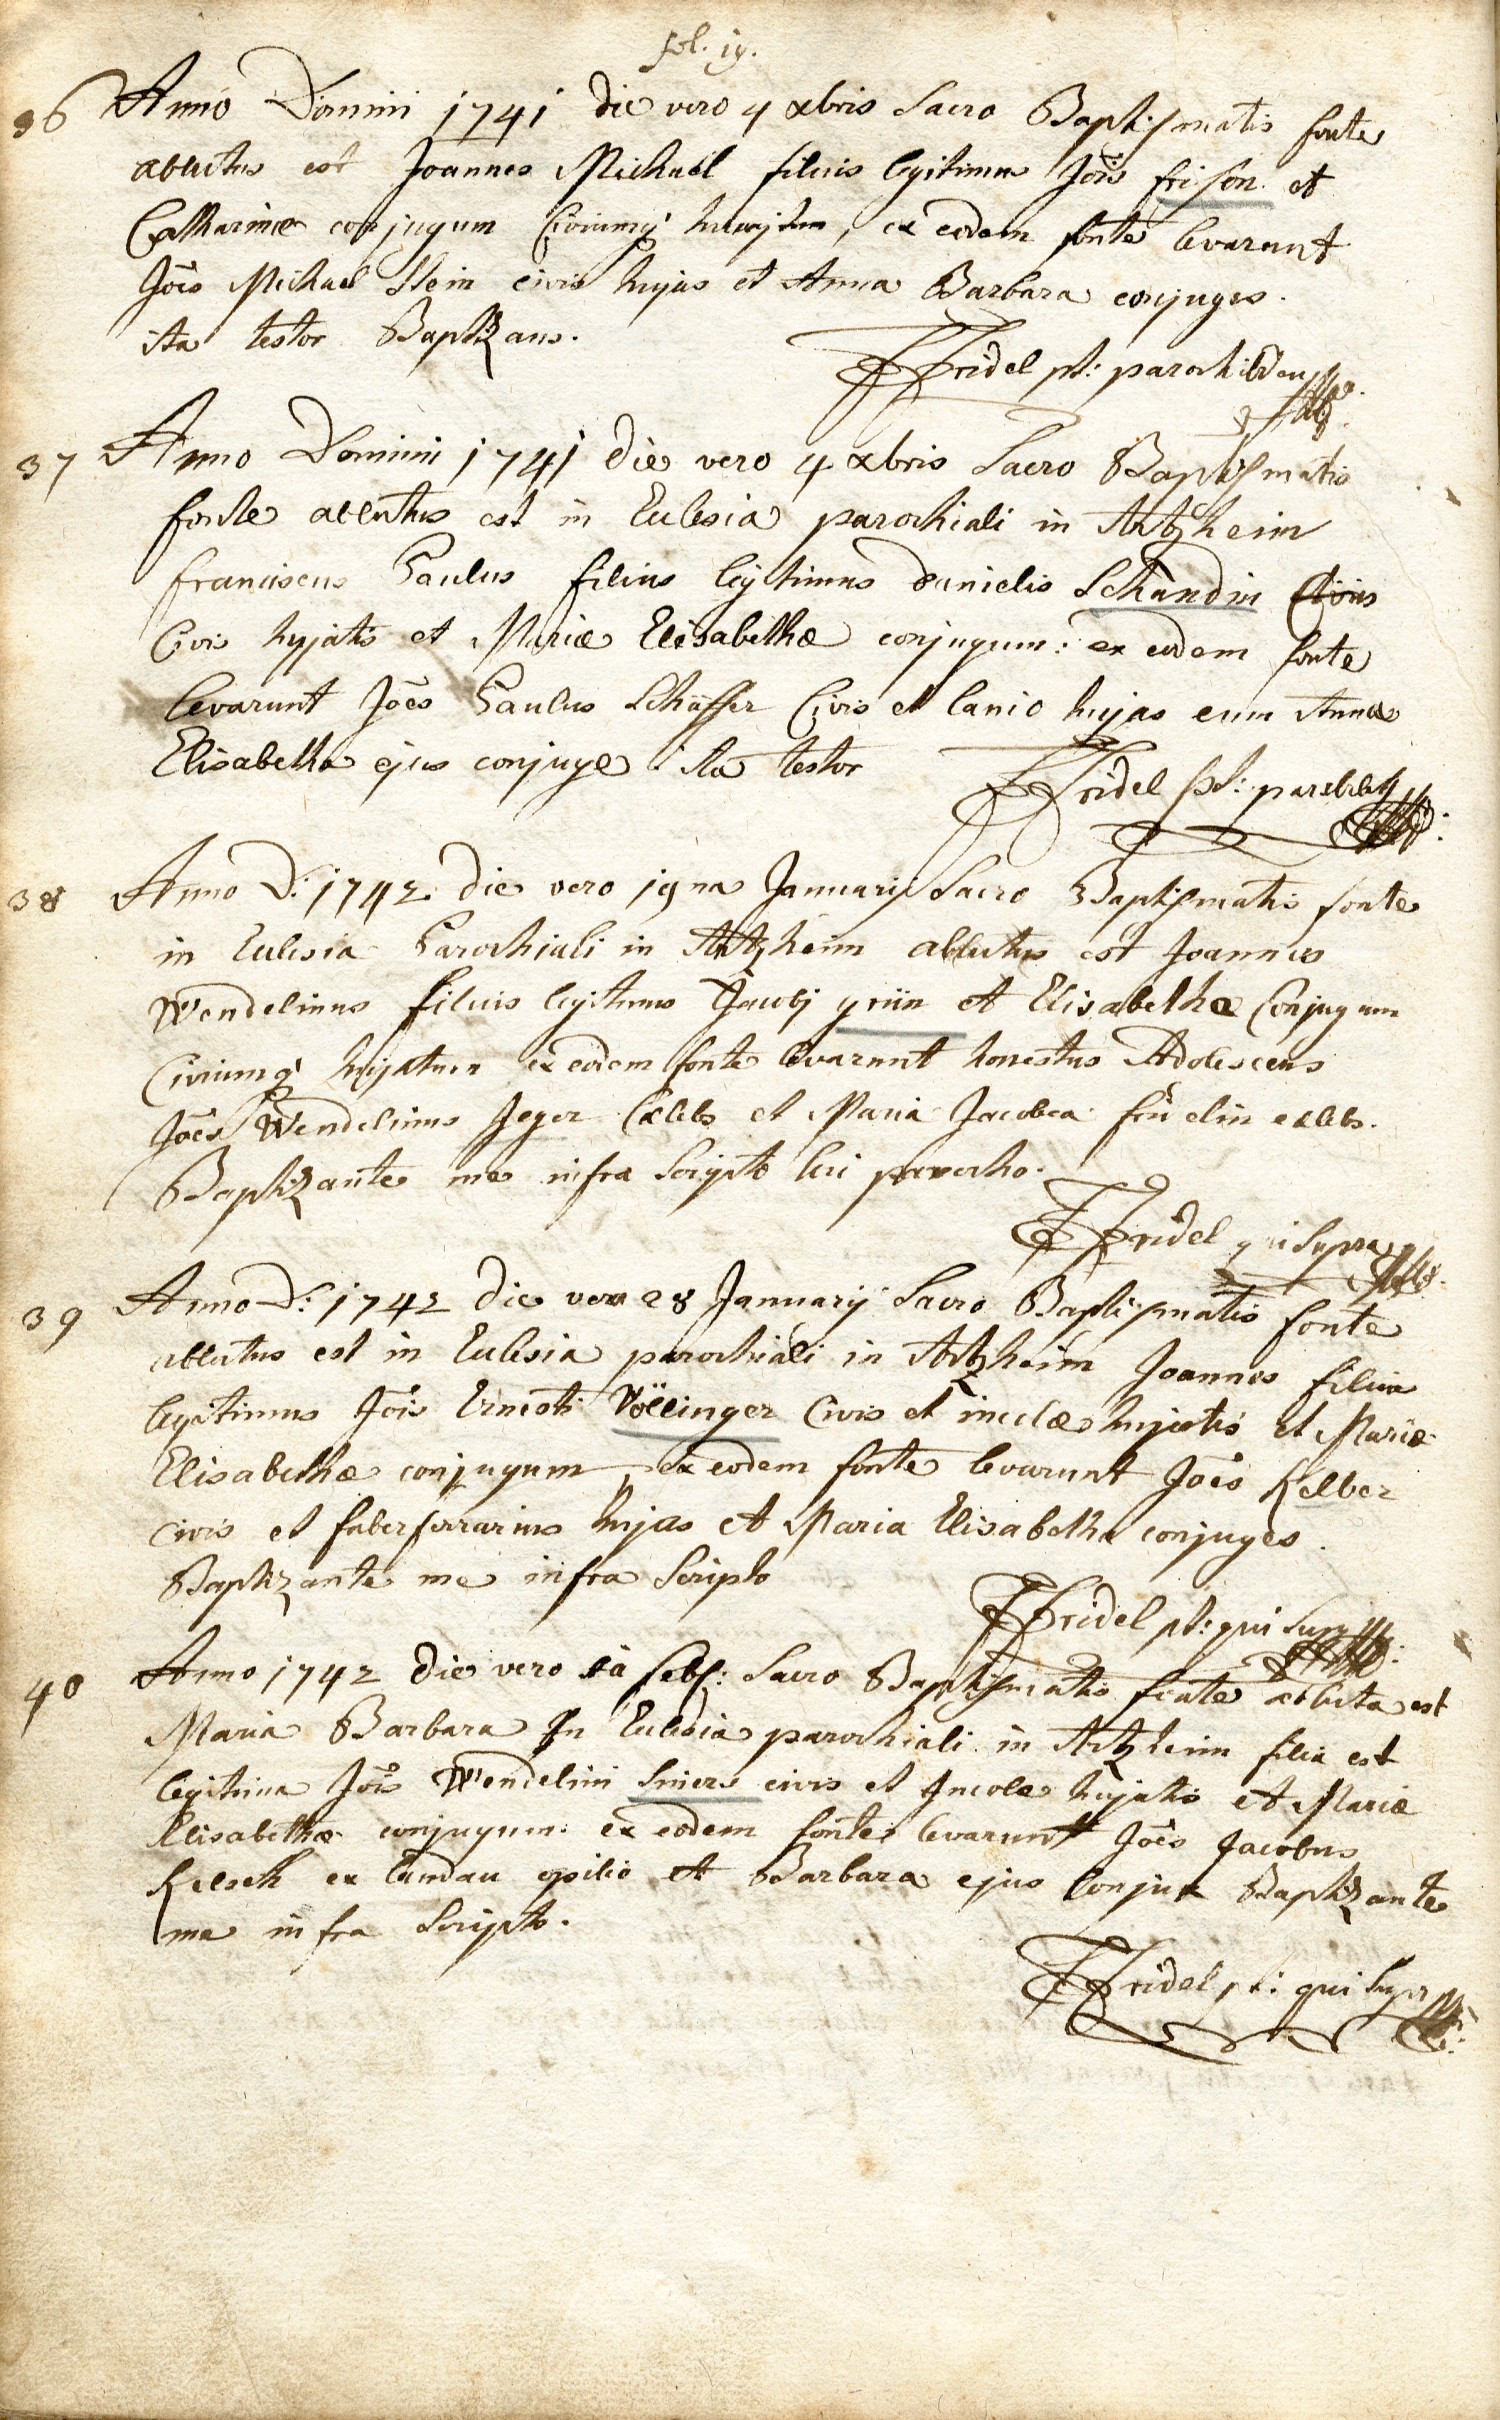 fol. 19.
36 Anno Domini 1741 die vero 4 xbris Sacro Baptismatis fonte
ablutus est Joannes Michaël filius legitimus Jois frison et
Catharinæ conjugum Civiumq; ex eodem fonte levarunt
Joes Michael Stein civis hujas et Anna Barbara conjuges.
ita testor Baptizans.
Fridel pt: parochi
37 Anno Domini 1741 die vero 4 xbris Sacro Baptismatis
fonte ablutus est in Eclesia parochiali in Artzheim
franciscus Paulus filius legitimus danielis Schandin
Civis hyjatis et Mariæ Elisabethæ conjugum: ex eodem fonte
levarunt Joes Paulus Schäffer Civis et lanio hujas cum Anna
Elisabetha ejus conjuge ita testor
Fridel pt:
38 Anno D: 1742. die vero 19na Januarij Sacro Baptismatis fonte
in Eclesia Parochiali in Artzheim ablutus est Joannes
Wendelinus filius legitimus Jacobj grün et Elisabethæ Conjugum
Civiumq; hujatum ex eodem fonte levarunt honestus Adolescens
Joes Wendelinus Jeger Cælebs et Maria Jacobea cælebs.
Baptizante me infra Scripto loci parocho.
Fridel qui Supra
39 Anno D: 1742 die vero 28 Januarij Sacro Baptismatis fonte
ablutus est in Eclesia parochiali in Artzheim Joannes filius
legitimus Jois Ernesti Völlinger Civis et incolæ hujatis et Mariæ
Elisabethæ conjugum, ex eodem fonte levarunt Joes Kelber
civis et faberferrarius hujas et Maria Elisabetha conjuges.
Baptizante me infra Scripto
Fridel pt: qui Supra
40 Anno 1742 die vero feb: Sacro Baptismatis fonte abluta est
Maria Barbara In Eclesia parochiali in Artzheim filia est
legitima Jois Wendelini Sniers civis et Incolæ hujatis et Mariæ
Elisabethæ conjugum: ex eodem fonte levarunt Joes Jacobus
Kelsch ex landau opilio et Barbara ejus Conjux Baptizante
me infra Scripto.
Fridel pt: qui Supra